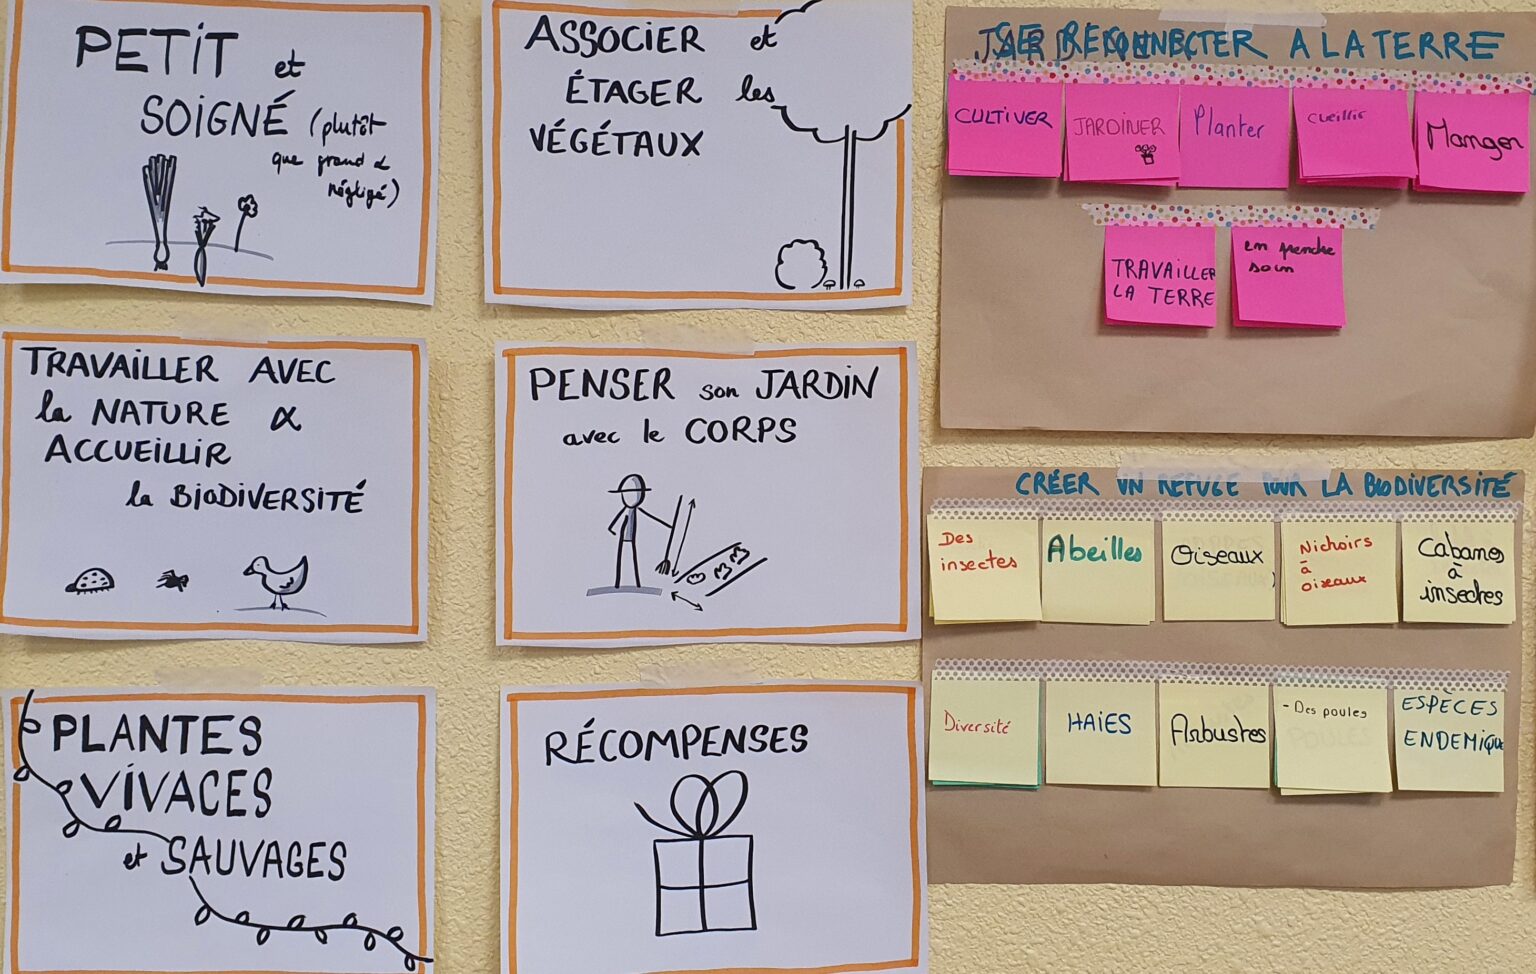 PETIT et
SOIGNÉ (plutôt
que grand &
négligé)
ASSOCIER et
ÉTAGER les
VÉGÉTAUX
TRAVAILLER AVEC
la NATURE &
ACCUEILLIR
la BIODIVERSITÉ
PENSER son JARDIN
avec le CORPS
PLANTES
VIVACES
et SAUVAGES
RÉCOMPENSES
SE RECONNECTER A LA TERRE
CULTIVER
JARDINER
Planter
cueillir
Manger
TRAVAILLER
LA TERRE
en prendre
soin
CRÉER UN REFUGE POUR LA BIODIVERSITÉ
Des
insectes
Abeilles
Oiseaux
Nichoirs
à
oiseaux
Cabanes
à
insectes
Diversité
HAIES
Arbustes
- Des poules
ESPÈCES
ENDEMIQU